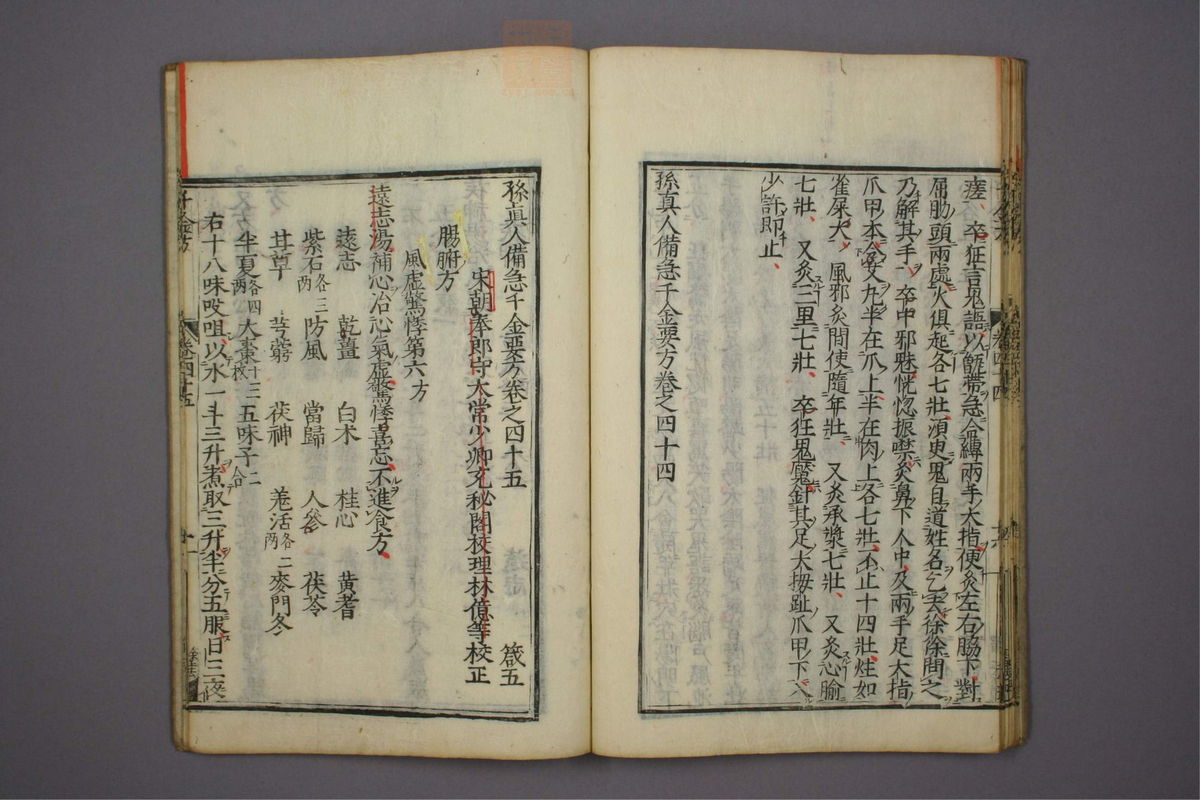 瘥、卒狂言鬼語以甑帶急合縛兩手大指便灸左右脇下對
屈肋頭兩處火俱起各七壯須臾鬼自道姓名乞去徐徐問之
乃解其手、卒中邪魅恍惚振噤灸鼻下人中及兩手足大指
爪甲本令艾丸半在爪上半在肉上各七壯、不止十四壯炷如
雀屎大、風邪灸間使隨年壯、又灸承漿七壯、又灸心腧
七壯、又灸三里七壯、卒狂鬼魘針其足大拇趾爪甲下入
少許即止、
孫真人備急千金要方卷之四十四
孫真人備急千金要方卷之四十五 箴五
宋朝奉郎守太常少卿充秘閣校理林億等校正
腸腑方
風虛驚悸第六方
遠志湯補心治心氣虛驚悸喜忘不進食方、
遠志 乾薑 白朮 桂心 黃耆
紫石各三兩 防風 當歸 人參 茯苓
甘草 芎藭 茯神 羌活各二兩 麥門冬
半夏各四兩 大棗十三枚 五味子二合
右十八味㕮咀以水一斗三升煮取三升半分五服日三夜
千金方 卷四十五